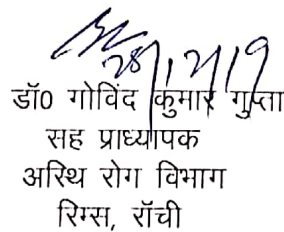 28/12/19
डॉ0 गोविंद कुमार गुप्ता
सह प्राध्यापक
अस्थि रोग विभाग
रिम्स, राँची